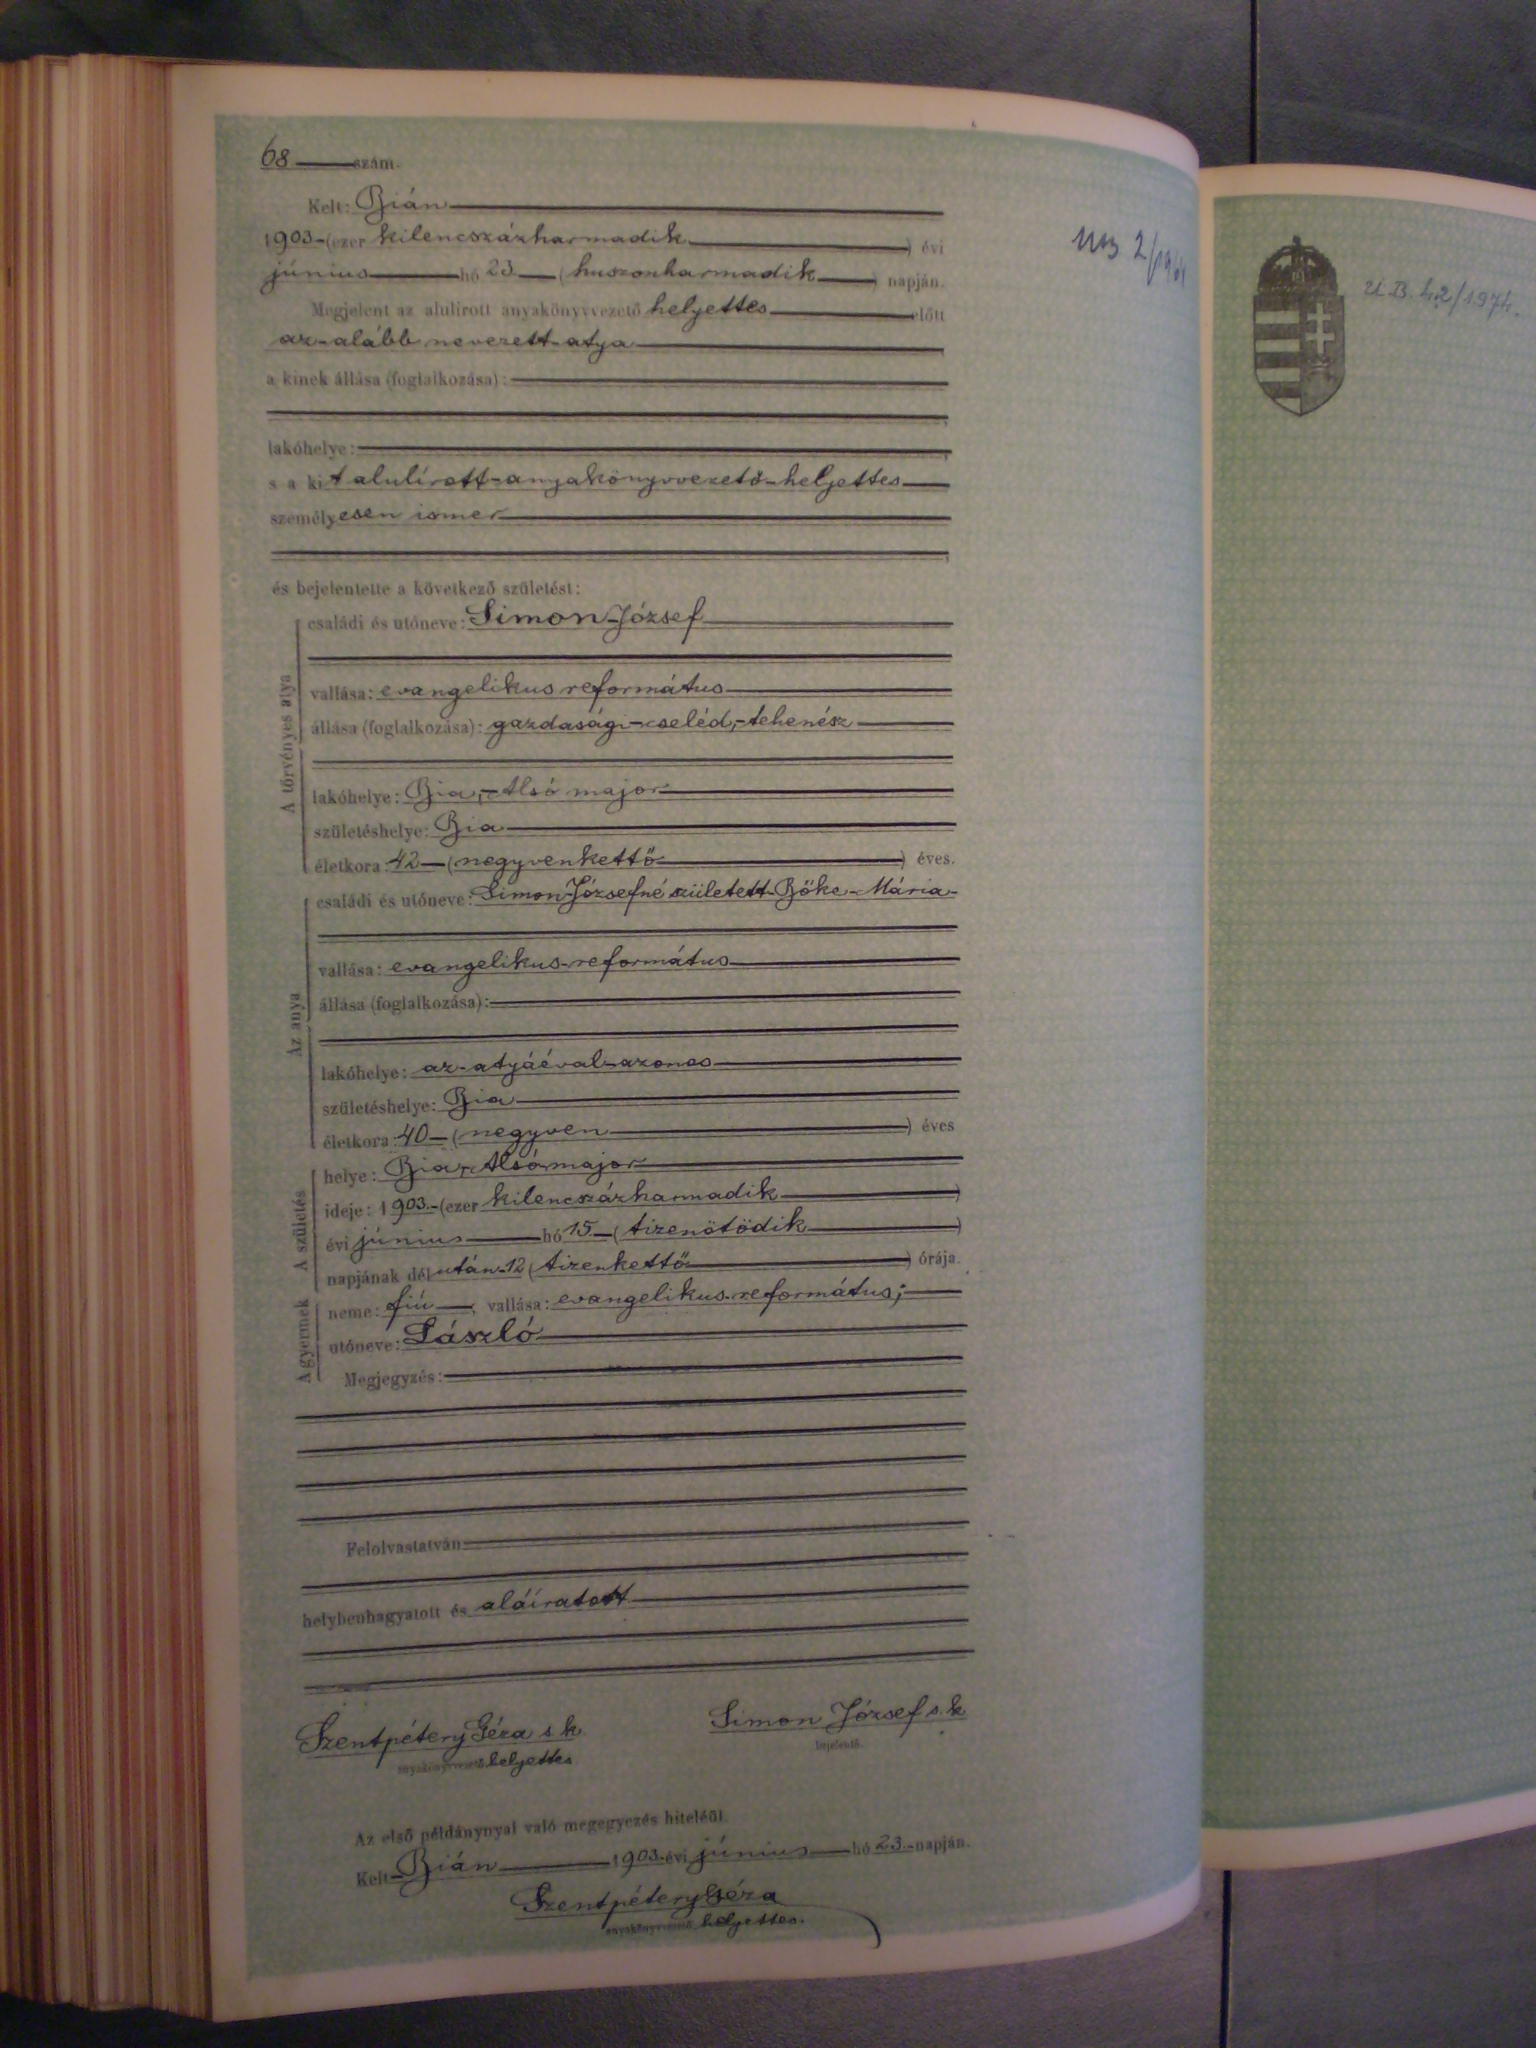 68 szám.
Kelt: Bián
1903 (ezer kilencszázharmadik) évi
június hó 23 (huszonharmadik) napján.
Megjelent az alulírott anyakönyvvezető helyettes előtt
az alább nevezett atya
a kinek állása (foglalkozása):
lakóhelye:
s a kit alulírott anyakönyvvezető-helyettes
személyesen ismer
és bejelentette a következő születést:
A törvényes atya
családi és utóneve: Simon József
vallása: evangelikus református
állása (foglalkozása): gazdasági-cseléd,-tehenész
lakóhelye: Bia,-Alsó major
születéshelye: Bia
életkora: 42 (negyvenkettő) éves.
Az anya
családi és utóneve: Simon Józsefné született Bőke Mária
vallása: evangelikus-református
állása (foglalkozása):
lakóhelye: az-atyáéval-azonos
születéshelye: Bia
életkora: 40 (negyven) éves
A születés
helye: Bia, Alsómajor
ideje: 1903. (ezer kilencszázharmadik)
évi június hó 15 (tizenötödik)
napjának délután 12 (tizenkettő) órája.
A gyermek
neme: fiú, vallása: evangelikus református;
utóneve: László
Megjegyzés:
Felolvastatván
helybenhagyatott és aláíratott
Szentpétery Géza s. k. Simon József s. k.
anyakönyvvezető helyettes bejelentő.
Az első példánynyal való megegyezés hiteléül.
Kelt Bián 1903. évi június hó 23. napján.
Szentpétery Géza
anyakönyvvezető helyettes.
2/1961
U.B. 42/1974.